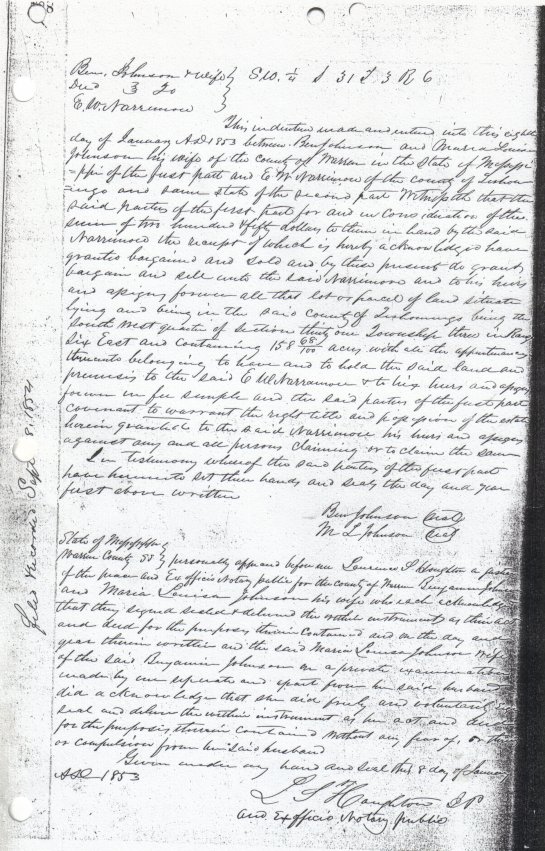 Ben. Johnson & wife } S.W. ¼ S 31 T 3 R 6
Deed 3 To }
E. W. Narrimore }
This indenture made and entered into this eighth
day of January AD 1853 between Ben Johnson and Maria Louisa
Johnson his wife of the County of Warren in the State of Mississi
-ppi of the first part and E W Narrimore of the county of Tishom
-ingo and same state of the second part Witnesseth that the
said parties of the first part for and in Consideration of the
sum of two hundred & fifty dollars to them in hand by the said
Narrimore the receipt of which is hereby acknowledged have
granted bargained and sold and by these present do grant
bargain and sell unto the said Narrimore and to his heirs
and assigns forever all that lot or parcel of land situate
lying and being in the said County of Tishomingo being the
South West quarter of Section thirty one Township three in Range
Six East and Containing 158 68/100 acres with all the appurtenances
thereunto belonging to have and to hold the said land and
premises to the said E W Narramore & to his heirs and assigns
forever in fee simple and the said parties of the first part
covenant to warrant the right title and possession of the estate
herein granted to the said Narrimore his heirs and assigns
against any and all persons claiming or to claim the same
In testimony whereof the said parties of the first part
have hereunto set their hands and seals the day and year
first above written
Ben Johnson Seal
M L Johnson Seal
State of Mississippi }
Warren County SS } personally appeared before me Laurence S Houghton a justice
of the peace and Ex officio Notary public for the County of Warren Benjamin Johnson
and Maria Louisa Johnson his wife who each acknowledged
that they signed sealed & delivered the within instrument as their act
and deed for the purposes therein Contained and on the day and
year therein written and the said Maria Louisa Johnson wife
of the said Benjamin Johnson on a private examination
made by me seperate and apart from her said husband
did acknowledge that she did freely and voluntarily
seal and deliver the within instrument as her act and deed
for the purposes therein contained without any fear of, or threat
or compulsion from her said husband
Given under my hand and seal this 8 day of January
AD 1853
L S Houghton J P
and Ex officio Notary public
Filed & Recorded Sept 8, 1854